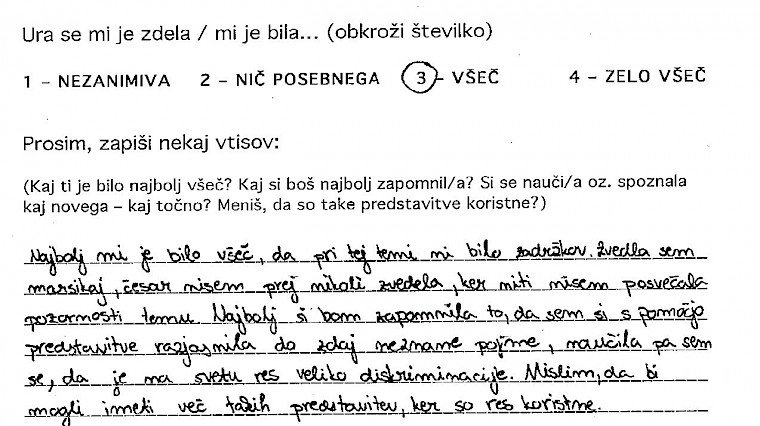 Ura se mi je zdela / mi je bila... (obkroži številko)
1 – NEZANIMIVA 2 – NIČ POSEBNEGA 3 – VŠEČ 4 – ZELO VŠEČ
Prosim, zapiši nekaj vtisov:
(Kaj ti je bilo najbolj všeč? Kaj si boš najbolj zapomnil/a? Si se nauči/a oz. spoznala
kaj novega – kaj točno? Meniš, da so take predstavitve koristne?)
Najbolj mi je bilo všeč, da pri tej temi ni bilo zadržkov. Zvedla sem
marsikaj, česar nisem prej nikoli zvedela, ker niti nisem posvečala
pozornosti temu. Najbolj si bom zapomnila to, da sem si s pomočjo
predstavitve razjasnila do zdaj neznane pojme, naučila pa sem
se, da je na svetu res veliko diskriminacije. Mislim, da bi
mogli imeti več takih predstavitev, ker so res koristne.